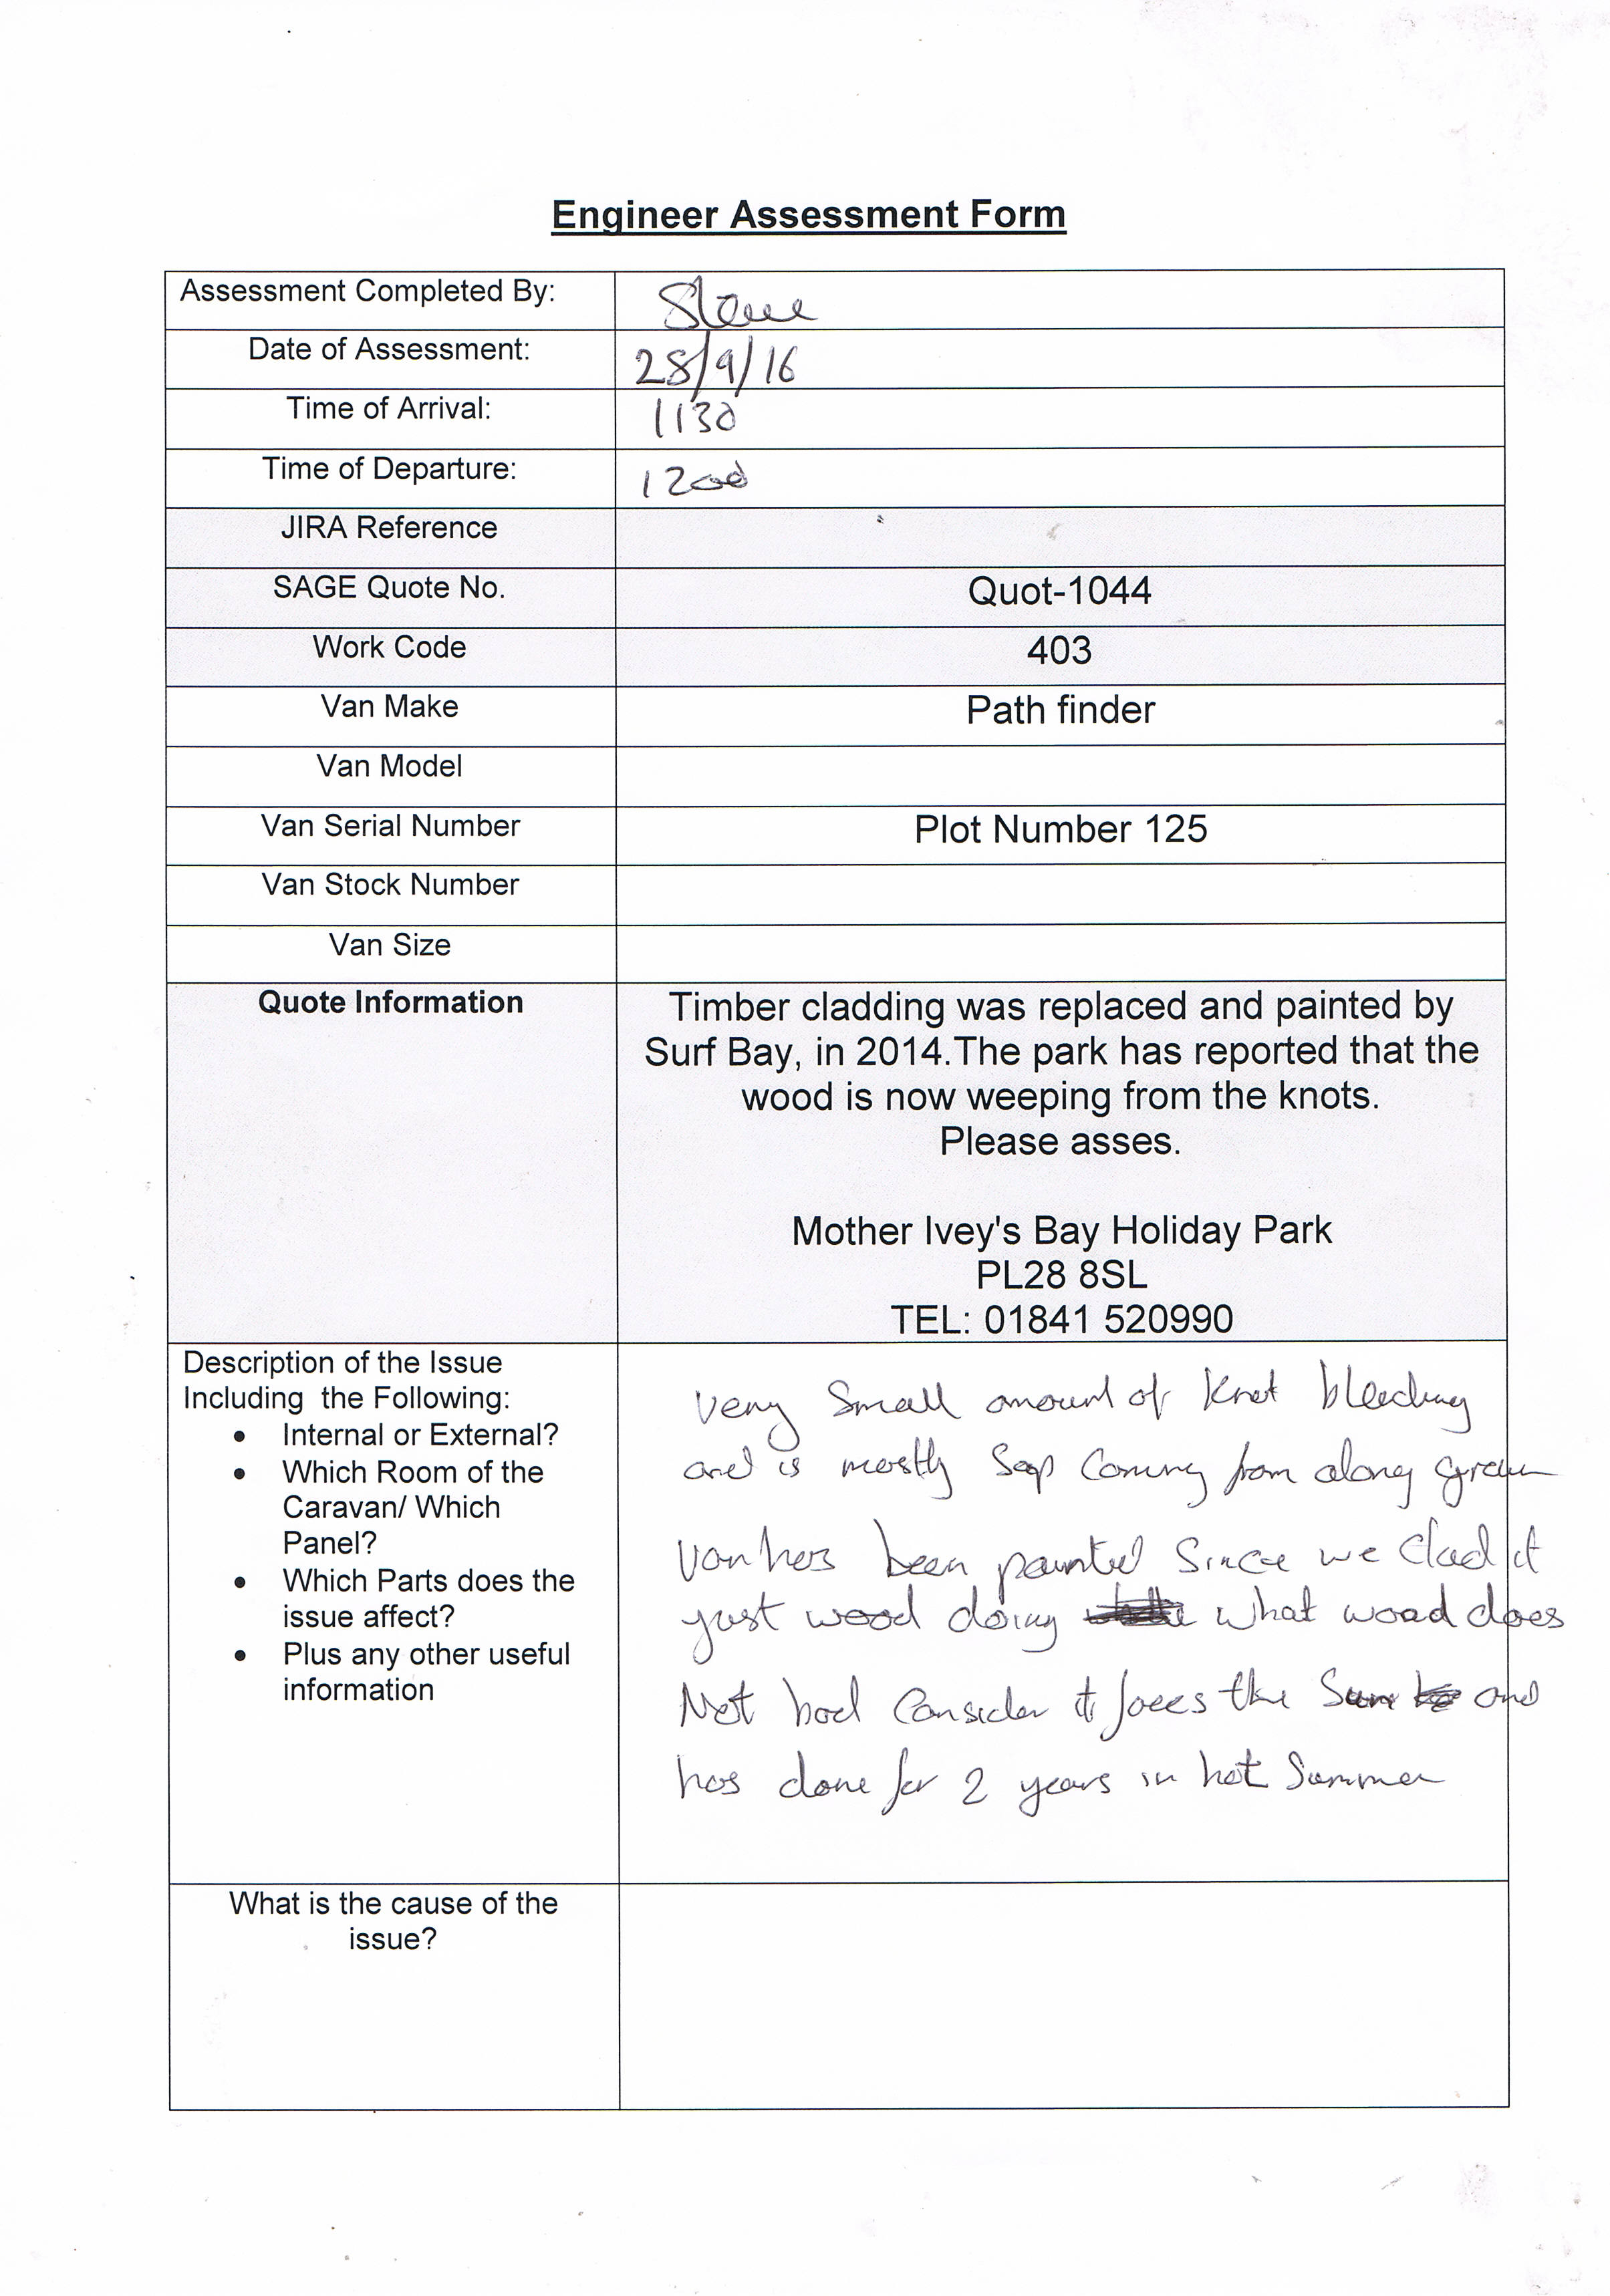 Engineer Assessment Form
Assessment Completed By: Steve
Date of Assessment: 28/9/16
Time of Arrival: 1130
Time of Departure: 1200
JIRA Reference
SAGE Quote No. Quot-1044
Work Code 403
Van Make Path finder
Van Model
Van Serial Number Plot Number 125
Van Stock Number
Van Size
Quote Information
Timber cladding was replaced and painted by
Surf Bay, in 2014.The park has reported that the
wood is now weeping from the knots.
Please asses.
Mother Ivey's Bay Holiday Park
PL28 8SL
TEL: 01841 520990
Description of the Issue
Including the Following:
• Internal or External?
• Which Room of the
Caravan/ Which
Panel?
• Which Parts does the
issue affect?
• Plus any other useful
information
very Small amount of Knot bleeding
and is mostly Sap Coming from along grain
Van has been painted Since we Clad it
just wood doing what wood does
Not bad Consider it faces the Sun and
has done for 2 years in hot Summer
What is the cause of the
issue?